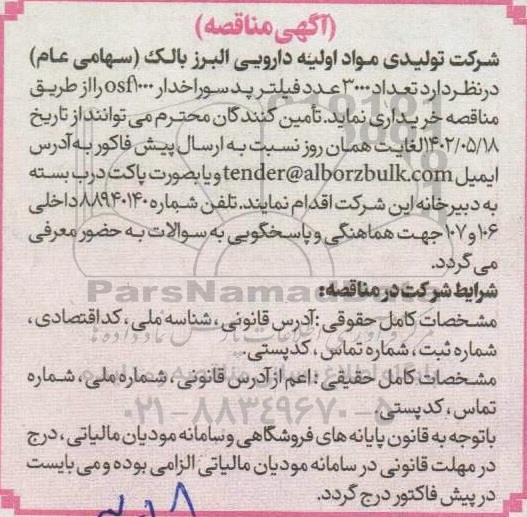 (آگهی مناقصه)
شرکت تولیدی مواد اولیه دارویی البرز بالک (سهامی عام)
درنظردارد تعداد ۳۰۰۰عدد فیلتر پد سوراخدار osf۱۰۰۰ رااز طریق
مناقصه خریداری نماید. تأمین کنندگان محترم می توانند از تاریخ
۱۴۰۲/۰۵/۱۸لغایت همان روز نسبت به ارسال پیش فاکور به آدرس
ایمیل tender@alborzbulk.com و یا بصورت پاکت درب بسته
به دبیرخانه این شرکت اقدام نمایند. تلفن شماره ۸۸۹۴۰۱۴۰داخلی
۱۰۶و ۱۰۷جهت هماهنگی و پاسخگویی به سوالات به حضور معرفی
می گردد.
شرایط شرکت در مناقصه:
ParsNamad
مشخصات کامل حقوقی :آدرس قانونی ، شناسه ملی ، کداقتصادی ،
شماره ثبت ، شماره تماس ، کدپستی.
مشخصات کامل حقیقی : اعم از آدرس قانونی ، شماره ملی ، شماره
تماس ، کدپستی.
۰۲۱-۸۸۳۴۹۶۷۰-۵
باتوجه به قانون پایانه های فروشگاهی و سامانه مودیان مالیاتی ، درج
در مهلت قانونی در سامانه مودیان مالیاتی الزامی بوده و می بایست
در پیش فاکتور درج گردد.